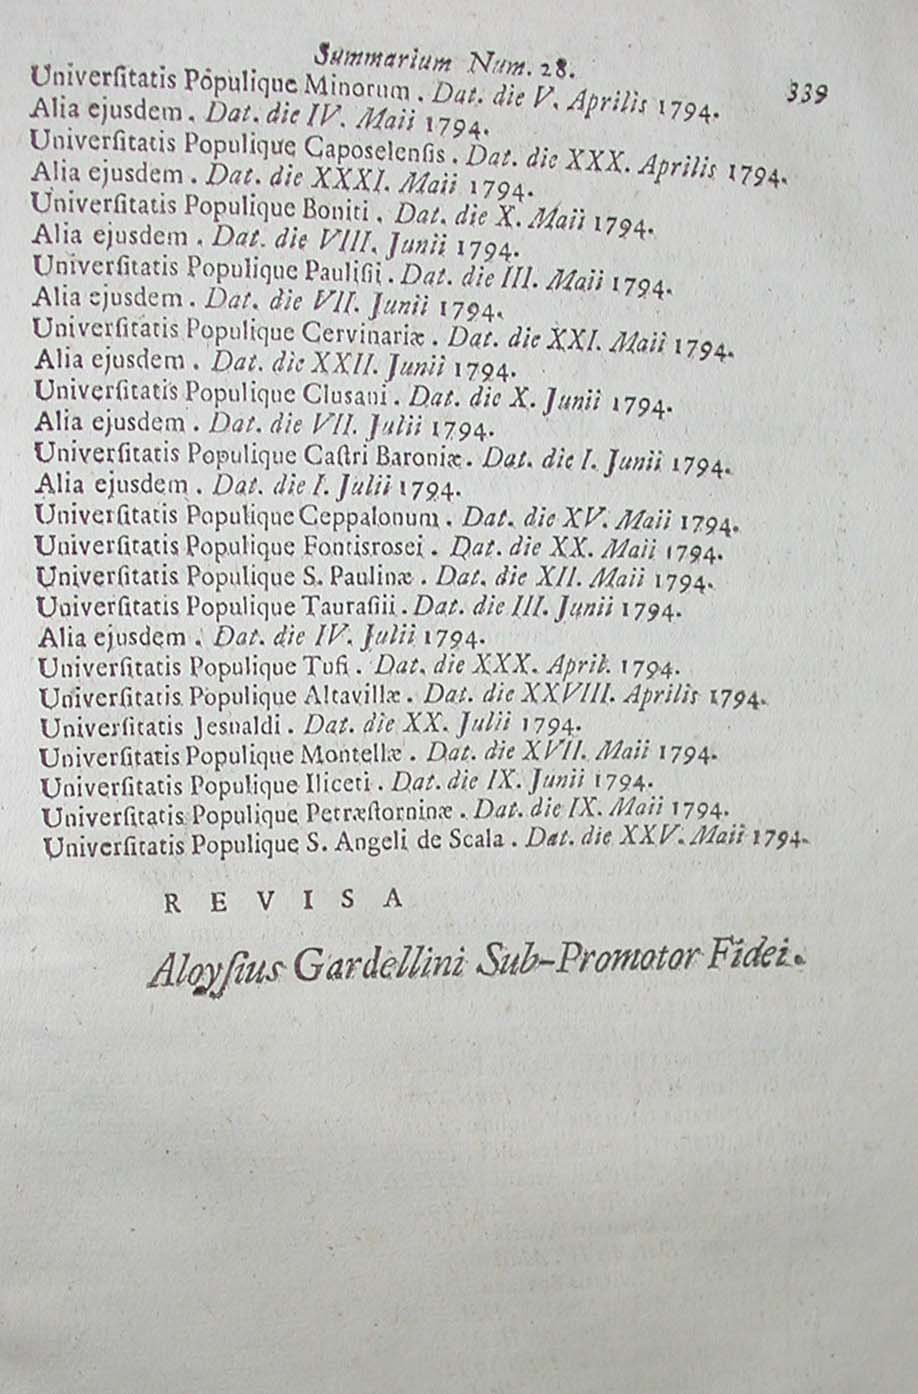 Summarium Num. 28.
339
Univerſitatis Populique Minorum. Dat. die V. Aprilis 1794.
Alia ejusdem. Dat. die IV. Maii 1794.
Univerſitatis Populique Caposelenſis. Dat. die XXX. Aprilis 1794.
Alia ejusdem. Dat. die XXXI. Maii 1794.
Univerſitatis Populique Boniti. Dat. die X. Maii 1794.
Alia ejusdem. Dat. die VIII. Junii 1794.
Univerſitatis Populique Pauliſii. Dat. die III. Maii 1794.
Alia ejusdem. Dat. die VII. Junii 1794.
Univerſitatis Populique Cervinariæ. Dat. die XXI. Maii 1794.
Alia ejusdem. Dat. die XXII. Junii 1794.
Univerſitatis Populique Clusani. Dat. die X. Junii 1794.
Alia ejusdem. Dat. die VII. Julii 1794.
Univerſitatis Populique Caſtri Baroniæ. Dat. die I. Junii 1794.
Alia ejusdem. Dat. die I. Julii 1794.
Univerſitatis Populique Ceppalonum. Dat. die XV. Maii 1794.
Univerſitatis Populique Fontisrosei. Dat. die XX. Maii 1794.
Univerſitatis Populique S. Paulinæ. Dat. die XII. Maii 1794.
Univerſitatis Populique Tauraſiii. Dat. die III. Junii 1794.
Alia ejusdem. Dat. die IV. Julii 1794.
Univerſitatis Populique Tufi. Dat. die XXX. April. 1794.
Univerſitatis Populique Altavillæ. Dat. die XXVIII. Aprilis 1794.
Univerſitatis Jesualdi. Dat. die XX. Julii 1794.
Univerſitatis Populique Montellæ. Dat. die XVII. Maii 1794.
Univerſitatis Populique Iliceti. Dat. die IX. Junii 1794.
Univerſitatis Populique Petræſtorninæ. Dat. die IX. Maii 1794.
Univerſitatis Populique S. Angeli de Scala. Dat. die XXV. Maii 1794.
REVISA
Aloyſius Gardellini Sub-Promotor Fidei.